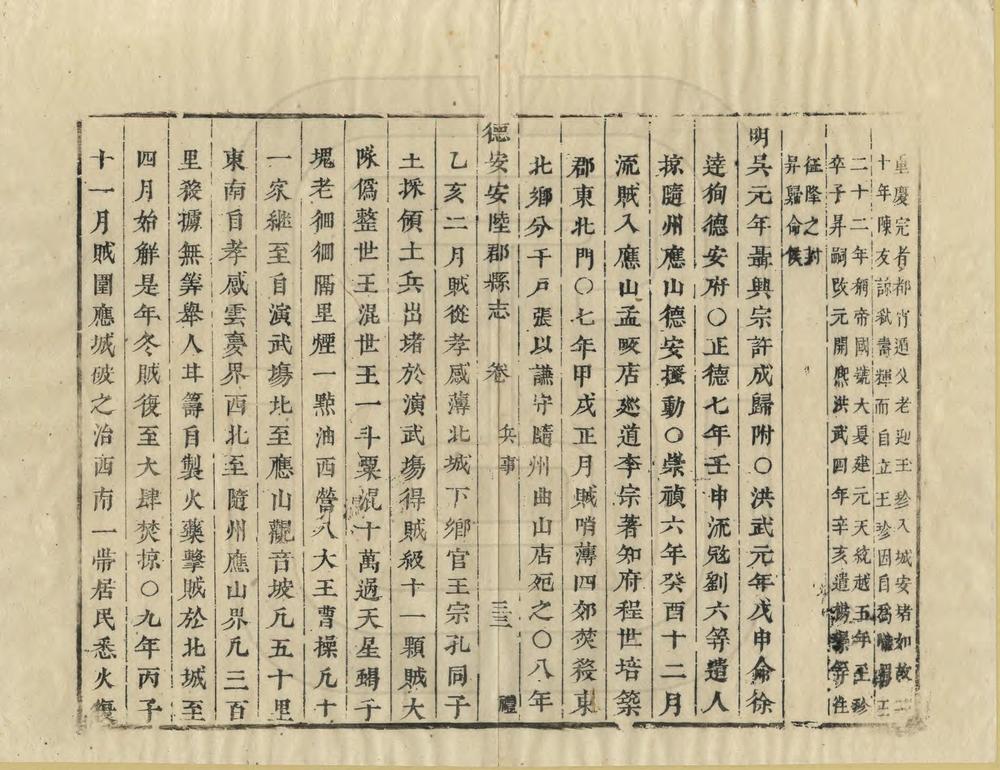 重慶完者都肯遁父老迎王珍入城安堵如故二
十年陳友諒弒壽輝而自立王珍因自為隴蜀王
二十二年稱帝國號大夏建元天統越五年至珍
卒子昇嗣改元開熙洪武四年辛亥遣湯等往
征降之封
昇歸命侯
明吳元年聶興宗許成歸附〇洪武元年戊申命徐
達狥德安府〇正德七年壬申流寇劉六等遣人
掠隨州應山德安擾動〇崇禎六年癸酉十二月
流賊入應山孟畈店廵道李宗著知府程世培築
郡東北門〇七年甲戌正月賊哨薄四郊焚殺東
北鄉分千戸張以謙守隨州曲山店死之〇八年
德安安陸郡縣志 卷 兵事 三三 禮
乙亥二月賊從孝感薄北城下鄉官王宗孔同子
土採領土兵出堵於演武塲得賊級十一顆賊大
隊僞整世王混世王一斗粟混十萬過天星蝎子
塊老𢌞𢌞隔里煙一點油西營八大王曹操凢十
一家継至自演武塲北至應山觀音坡凢五十里
東南自孝感雲夢界西北至隨州應山界凢三百
里殺擄無筭舉人井籌自製火藥擊賊於北城至
四月始解是年冬賊復至大肆焚掠〇九年丙子
十一月賊圍應城破之治西南一帶居民悉火復